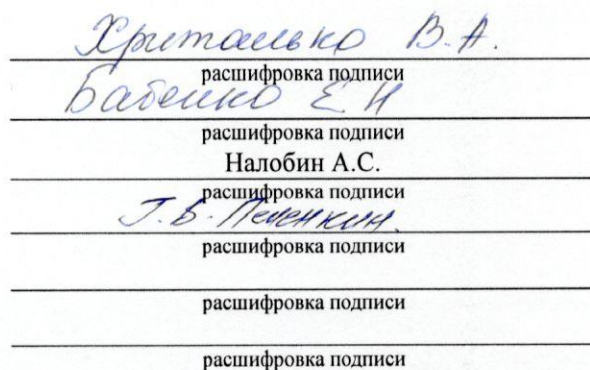 В.А.
расшифровка подписи
Бабенко Е Н
расшифровка подписи
Налобин А.С.
расшифровка подписи
расшифровка подписи
расшифровка подписи
расшифровка подписи